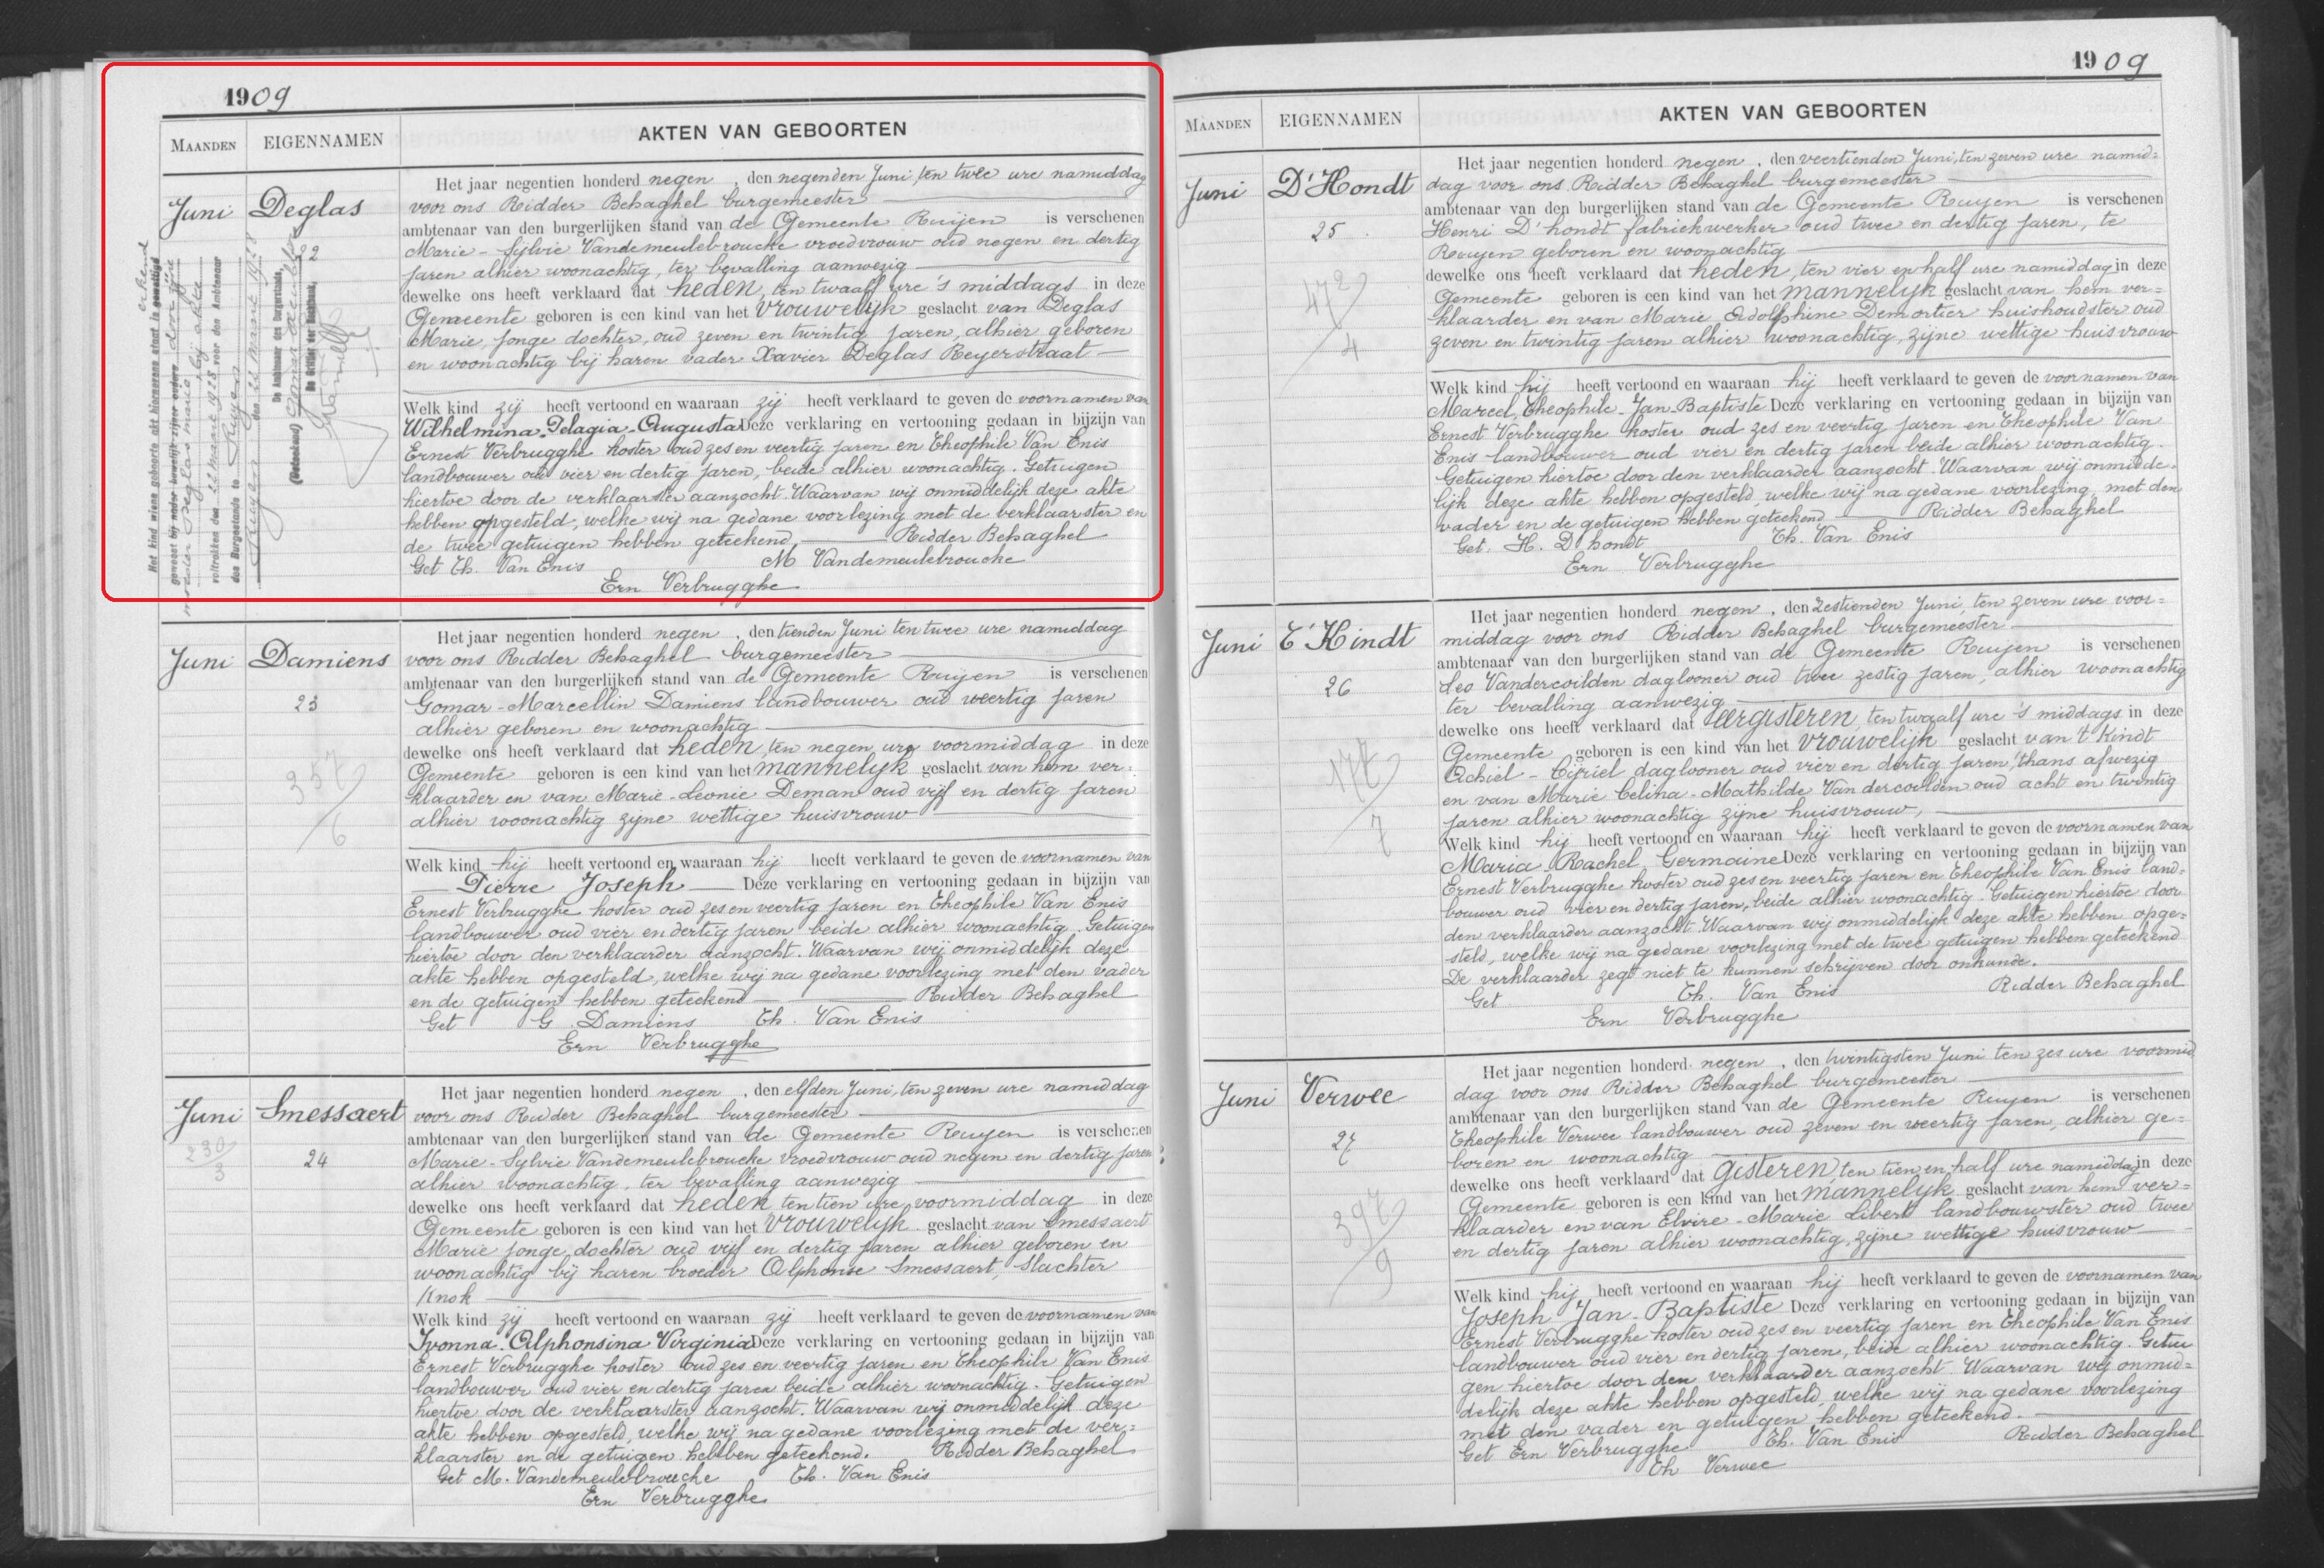 1909
MAANDEN EIGENNAMEN AKTEN VAN GEBOORTEN
Juni Deglas
22
Het jaar negentien honderd negen, den negenden Juni, ten twee ure namiddag
voor ons Ridder Behaghel burgemeester
ambtenaar van den burgerlijken stand van de Gemeente Ruijen is verschenen
Marie-Sylvie Vandemeulebroucke vroedvrouw oud negen en dertig
jaren alhier woonachtig, ter bevalling aanwezig
dewelke ons heeft verklaard dat heden, ten twaalf ure 's middags in deze
Gemeente geboren is een kind van het vrouwelijk geslacht van Deglas
Marie, jonge dochter, oud zeven en twintig jaren, alhier geboren
en woonachtig bij haren vader Xavier Deglas Reyerstraat
Welk kind zij heeft vertoond en waaraan zij heeft verklaard te geven de voornamen van
Wilhelmina-Pelagia-Augusta Deze verklaring en vertooning gedaan in bijzijn van
Ernest Verbrugghe koster oud zes en veertig jaren en Theophile Van Enis
landbouwer oud vier en dertig jaren, beide alhier woonachtig. Getuigen
hiertoe door de verklaarster aanzocht. Waarvan wij onmiddelijk deze akte
hebben opgesteld, welke wij na gedane voorlezing met de verklaarster en
de twee getuigen hebben geteekend, Ridder Behaghel
Get Th. Van Enis M Vandemeulebroucke
Ern Verbrugghe
erkend
Het kind wiens geboorte akt hiernevens staat is gewettigd
geweest bij nader huwelijk zijner ouders door zijne
moeder Deglas Marie bij akte
voltrokken den 22 maart 1928 voor den Ambtenaar
des Burgerstands te Ruyen
Ruyen den 22 maart 1928
De Ambtenaar des Burgerstands,
(Geteekend)
De Griffier der Rechtbank,
Juni Damiens
23
357
6
Het jaar negentien honderd negen, den tienden Juni ten twee ure namiddag
voor ons Ridder Behaghel burgemeester
ambtenaar van den burgerlijken stand van de Gemeente Ruijen is verschenen
Gomar-Marcellin Damiens landbouwer oud veertig jaren
alhier geboren en woonachtig
dewelke ons heeft verklaard dat heden, ten negen ure voormiddag in deze
Gemeente geboren is een kind van het mannelyk geslacht van hem ver=
klaarder en van Marie-Leonie Deman oud vijf en dertig jaren
alhier woonachtig zijne wettige huisvrouw
Welk kind hij heeft vertoond en waaraan hij heeft verklaard te geven de voornamen van
Pierre Joseph Deze verklaring en vertooning gedaan in bijzijn van
Ernest Verbrugghe koster oud zes en veertig jaren en Theophile Van Enis
landbouwer oud vier en dertig jaren beide alhier woonachtig. Getuigen
hiertoe door den verklaarder aanzocht. Waarvan wij onmiddelijk deze
akte hebben opgesteld, welke wij na gedane voorlezing met den vader
en de getuigen hebben geteekend Ridder Behaghel
Get G. Damiens Th. Van Enis
Ern Verbrugghe
Juni Smessaert
230
3
24
Het jaar negentien honderd negen, den elfden Juni, ten zeven ure namiddag
voor ons Ridder Behaghel burgemeester
ambtenaar van den burgerlijken stand van de Gemeente Ruyen is verschenen
Marie-Sylvie Vandemeulebroucke vroedvrouw oud negen en dertig jaren
alhier woonachtig, ter bevalling aanwezig
dewelke ons heeft verklaard dat heden ten tien ure voormiddag in deze
Gemeente geboren is een kind van het vrouwelyk geslacht van Smessaert
Marie jonge dochter oud vijf en dertig jaren alhier geboren en
woonachtig bij haren broeder Alphonse Smessaert, Slachter
Knok
Welk kind zij heeft vertoond en waaraan zij heeft verklaard te geven de voornamen van
Ivonna-Alphonsina Virginia Deze verklaring en vertooning gedaan in bijzijn van
Ernest Verbrugghe koster oud zes en veertig jaren en Theophile Van Enis
landbouwer oud vier en dertig jaren beide alhier woonachtig. Getuigen
hiertoe door de verklaarster aanzocht. Waarvan wij onmiddelijk deze
akte hebben opgesteld, welke wij na gedane voorlezing met de ver=
klaarster en de getuigen hebben geteekend. Ridder Behaghel
Get M. Vandemeulebroucke Th. Van Enis
Ern Verbrugghe
1909
MAANDEN EIGENNAMEN AKTEN VAN GEBOORTEN
Juni D'Hondt
25
472
4
Het jaar negentien honderd negen, den veertienden Juni, ten zeven ure namid=
dag voor ons Ridder Behaghel burgemeester
ambtenaar van den burgerlijken stand van de Gemeente Ruyen is verschenen
Henri D'hondt fabriekwerker oud twee en dertig jaren, te
Ruyen geboren en woonachtig
dewelke ons heeft verklaard dat heden, ten vier en half ure namiddag in deze
Gemeente geboren is een kind van het mannelyk geslacht van hem ver=
klaarder en van Marie Adolphine Demortier huishoudster oud
zeven en twintig jaren alhier woonachtig, zijne wettige huisvrouw
Welk kind hij heeft vertoond en waaraan hij heeft verklaard te geven de voornamen van
Marcel, Theophile-Jan-Baptiste Deze verklaring en vertooning gedaan in bijzijn van
Ernest Verbrugghe koster oud zes en veertig jaren en Theophile Van
Enis landbouwer oud vier en dertig jaren beide alhier woonachtig.
Getuigen hiertoe door den verklaarder aanzocht. Waarvan wij onmidde=
lijk deze akte hebben opgesteld, welke wij na gedane voorlezing met den
vader en de getuigen hebben geteekend Ridder Behaghel
Get. H. D'hondt Th. Van Enis
Ern Verbrugghe
Juni T'Kindt
26
177
7
Het jaar negentien honderd negen, den zestienden Juni, ten zeven ure voor=
middag voor ons Ridder Behaghel burgemeester
ambtenaar van den burgerlijken stand van de Gemeente Ruyen is verschenen
Leo Vandercoilden daglooner oud twee zestig jaren, alhier woonachtig
ter bevalling aanwezig
dewelke ons heeft verklaard dat eergisteren, ten twaalf ure 's middags in deze
Gemeente geboren is een kind van het vrouwelijk geslacht van 't Kindt
Achiel-Cijriel daglooner oud vier en dertig jaren, thans afwezig
en van Marie Celina-Mathilde Vandercoilden oud acht en twintig
jaren alhier woonachtig zijne huisvrouw,
Welk kind hij heeft vertoond en waaraan hij heeft verklaard te geven de voornamen van
Maria Rachel Germaine Deze verklaring en vertooning gedaan in bijzijn van
Ernest Verbrugghe koster oud zes en veertig jaren en Theophile Van Enis land=
bouwer oud vier en dertig jaren, beide alhier woonachtig. Getuigen hiertoe door
den verklaarder aanzocht. Waarvan wij onmiddelijk deze akte hebben opge=
steld, welke wij na gedane voorlezing met de twee getuigen hebben geteekend
De verklaarder zegt niet te kunnen schrijven door onkunde.
Get Th. Van Enis Ridder Behaghel
Ern Verbrugghe
Juni Verwee
27
397
9
Het jaar negentien honderd negen, den twintigsten Juni ten zes ure voormid
dag voor ons Ridder Behaghel burgemeester
ambtenaar van den burgerlijken stand van de Gemeente Ruyen is verschenen
Theophile Verwee landbouwer oud zeven en veertig jaren, alhier ge=
boren en woonachtig
dewelke ons heeft verklaard dat gisteren, ten tien en half ure namiddag in deze
Gemeente geboren is een kind van het mannelyk geslacht van hem ver=
klaarder en van Elvire-Marie Libert landbouwster oud twee
en dertig jaren alhier woonachtig, zijne wettige huisvrouw
Welk kind hij heeft vertoond en waaraan hij heeft verklaard te geven de voornamen van
Joseph Jan-Baptiste Deze verklaring en vertooning gedaan in bijzijn van
Ernest Verbrugghe koster oud zes en veertig jaren en Theophile Van Enis
landbouwer oud vier en dertig jaren, beide alhier woonachtig. Getui
gen hiertoe door den verklaarder aanzocht Waarvan wij onmid=
delijk deze akte hebben opgesteld, welke wij na gedane voorlezing
met den vader en getuigen hebben geteekend.
Get Ern Verbrugghe Th. Van Enis Ridder Behaghel
Th Verwee